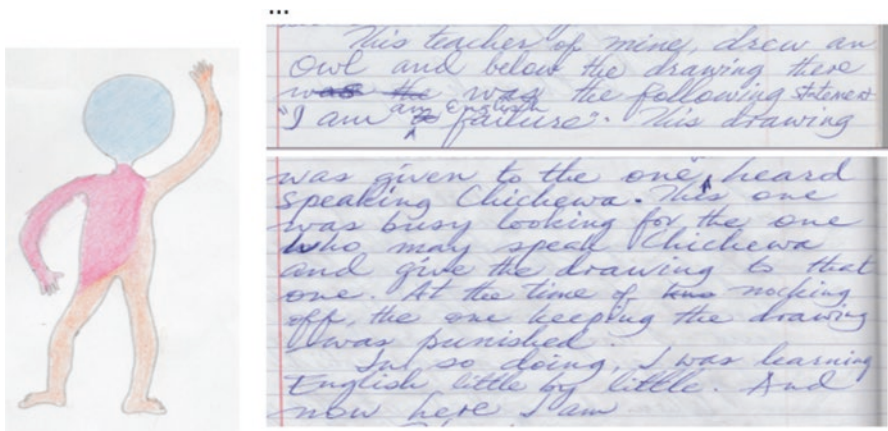 ...
This teacher of mine, drew an
owl and below the drawing there
was the was the following statement
"I am an English failure". This drawing
was given to the one, heard
speaking Chichewa. This one
was busy looking for the one
who may speak Chichewa
and give the drawing to that
one. At the time of nocking
off, the one keeping the drawing
was punished.
In so doing, I was learning
English little by little. And
now here I am